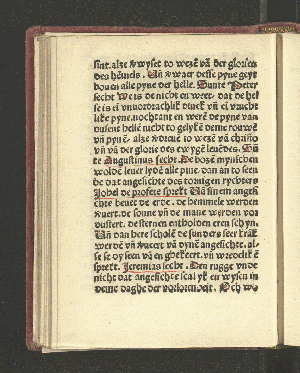 sint. alze vwyset to wezē vā der glorien
des hēmels. Vn̄ vwaer desse pyne geyt
bouen alle pyne der helle. Sunte Peter
secht We is de nicht en weet. dat de hel
se is ei vnuordrachlik
like pyne. nochtant en werē de pyne van
dusent hellē nicht to gelykē deme rouwe
vn̄ pynē. alze vordreuē to wezē vā christo
vn̄ vā der glorie des ewygē leuēdes. Sū
te Augustinus secht. De bozē mynschen
woldē leuer lydē alle pine. dan an to seen
de dat angesichte des tornigen rychters
Johel de profete sprekt Vā sinen angesi
chte beuet de erde. de hemmele werden
de sonne vn̄ de mane werden vor
dustert. de sternen entholden eren schyn.
Vn̄ dan here scholē de sunders seer
werdē vn̄ vā dynē angesichte. al
se se dy seen vā en ghekeert. vn̄
sprekt. Jeremias secht. Den rugge vnde
nicht dat angesichte scal yk en wysen in
deme daghe der vorlorenheit. Och wo